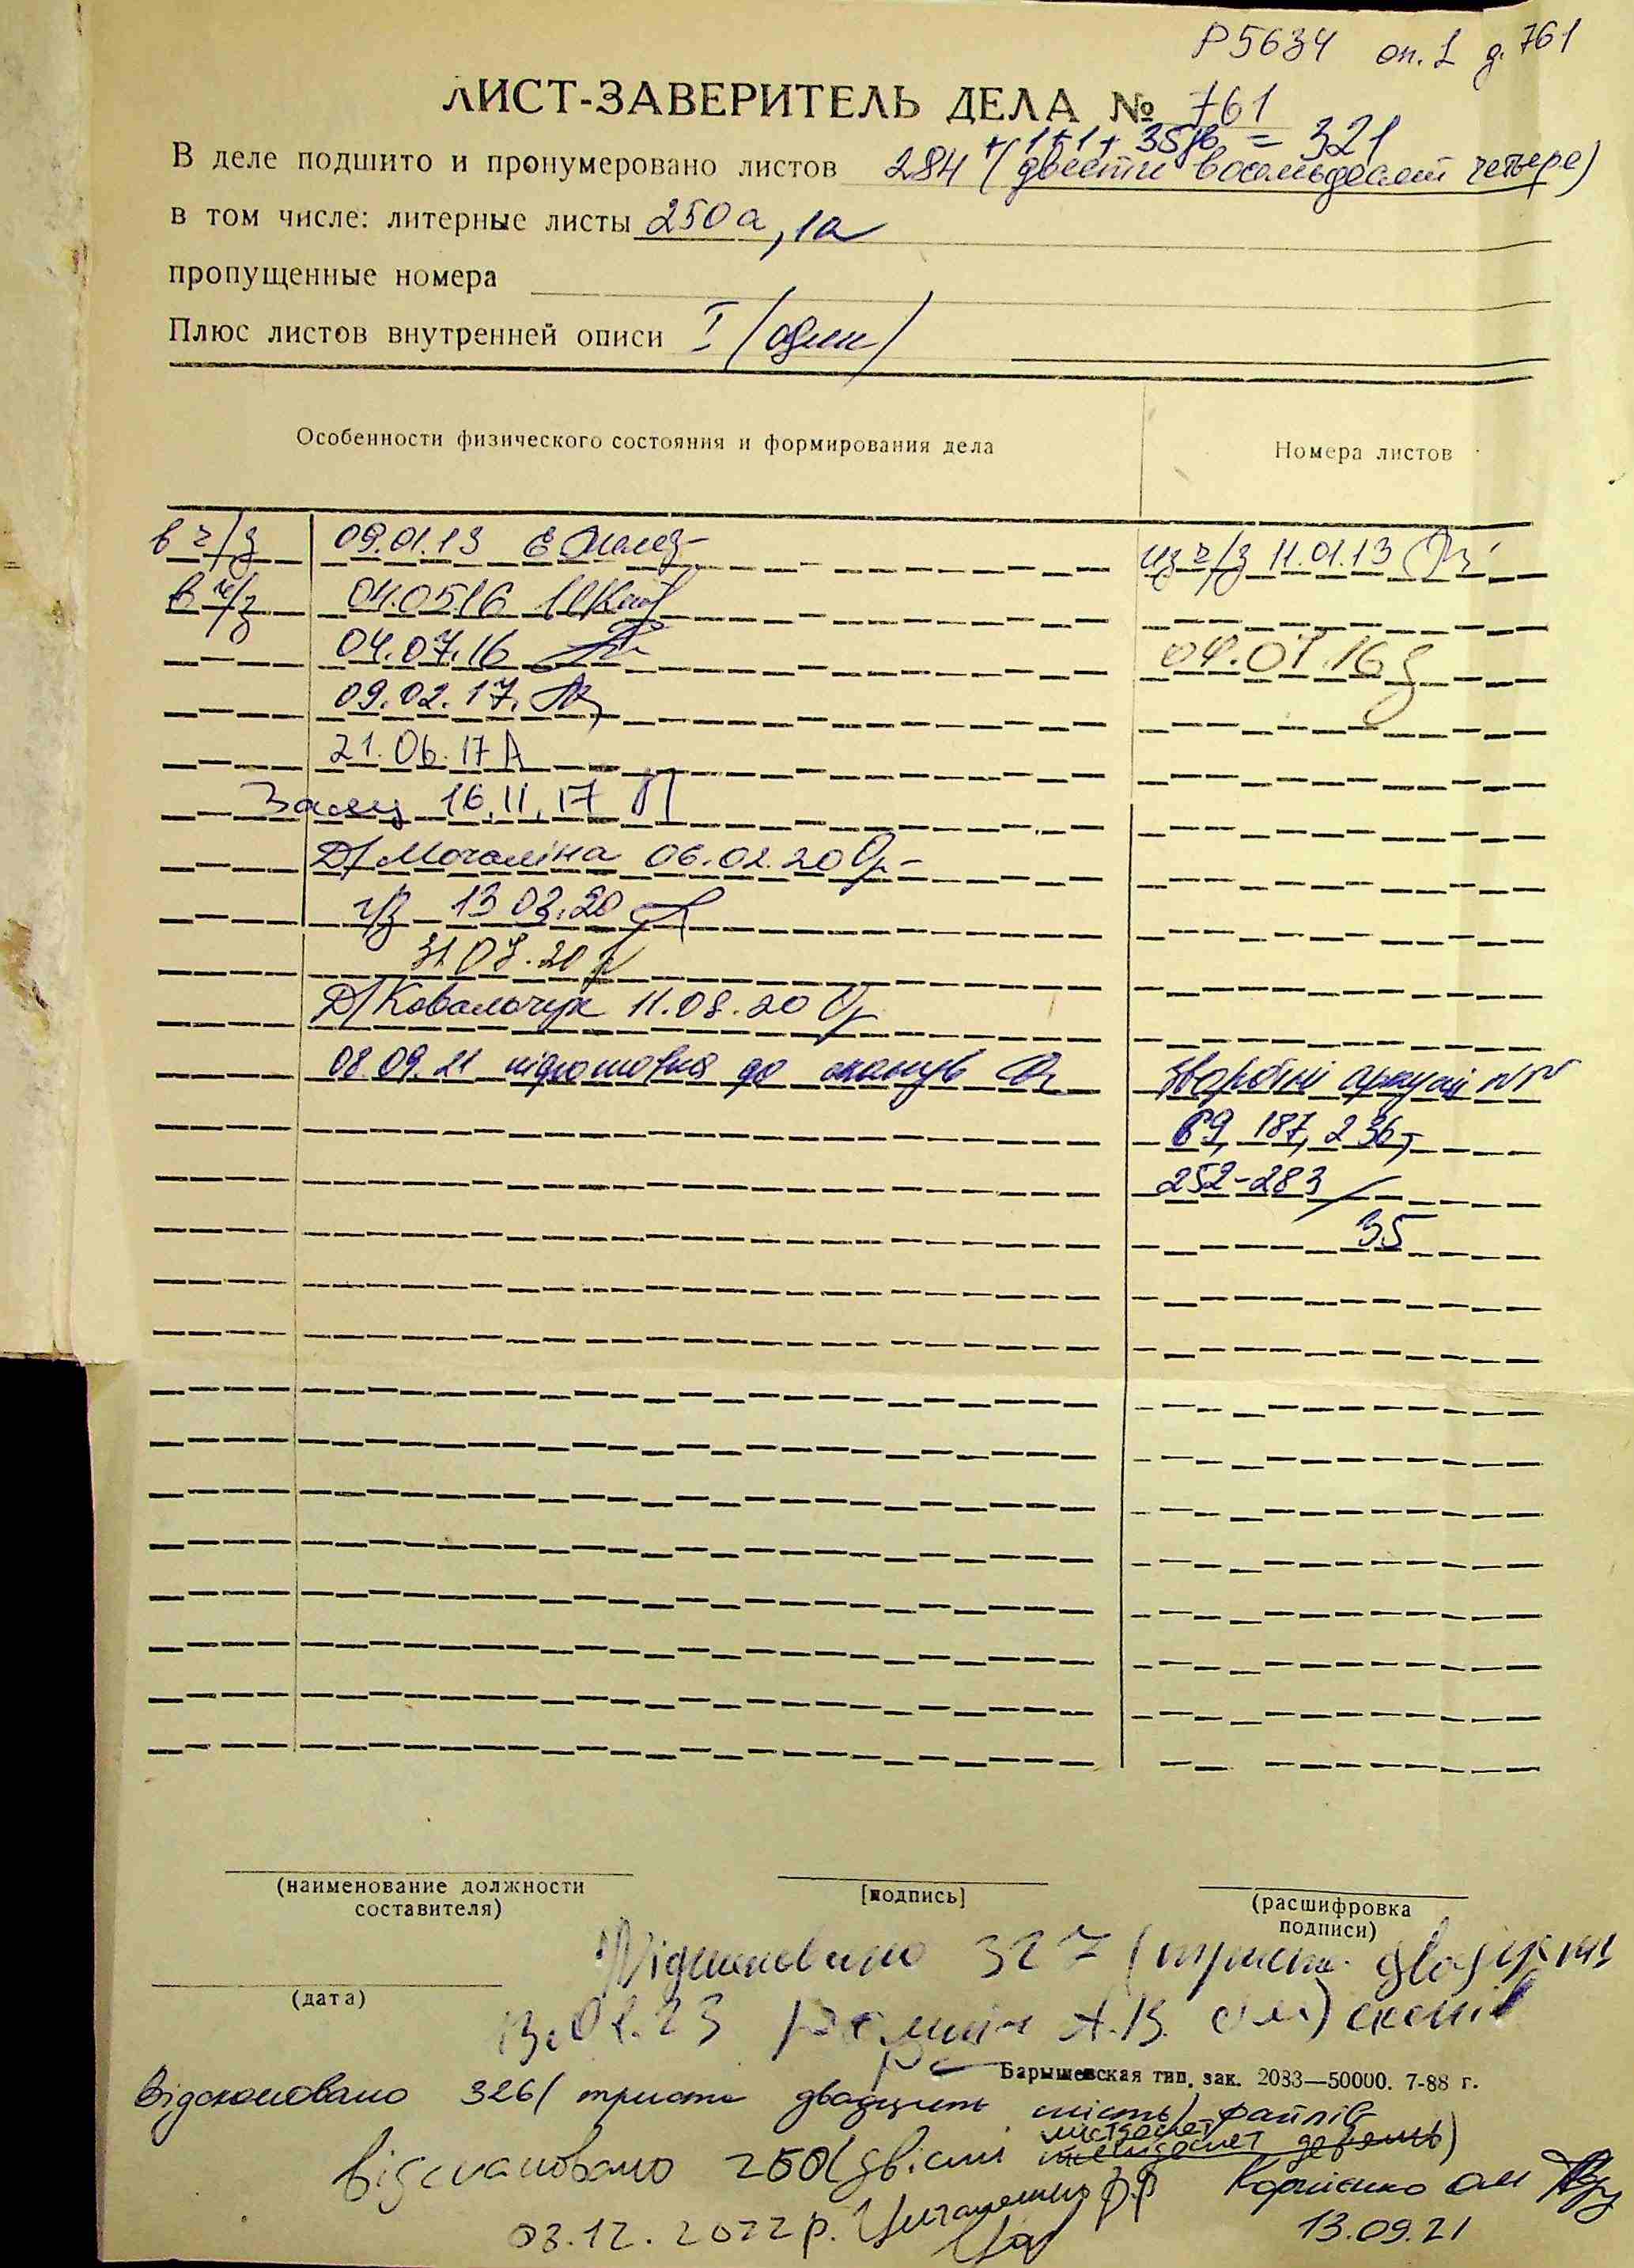 Р5634 оп. 1 д. 761
ЛИСТ-ЗАВЕРИТЕЛЬ ДЕЛА № 761
+1+1+ 35зв = 321
В деле подшито и пронумеровано листов 284 (двести восемьдесят четыре)
в том числе: литерные листы 250а, 1а
пропущенные номера
Плюс листов внутренней описи I (один)
Особенности физического состояния и формирования дела
Номера листов
в ч/з 09.01.13 из ч/з 11.01.13
в ч/з 04.05.16
04.07.16 04.07.16
09.02.17.
21.06.17
Заяц 16.11.17
Д/Могаліна 06.02.20
ч/з 13 03.20
31 07.20
Д/Ковальчук 11.08.20
08.09.21 підготовка до сканув зворотні аркуші №№
69, 187, 236,
252-283
35
(наименование должности составителя)
[подпись]
(расшифровка подписи)
(дата)
Відскановано 327 (триста двадцять
сім) скенів
Барышевская тип. зак. 2083—50000. 7-88 г.
Відскановано 326 (триста двадцять шість) файлів
Відскановано 260 (двісті шістдесят)
Корнієнко ОМ
03.12.2022 р.
13.09.21